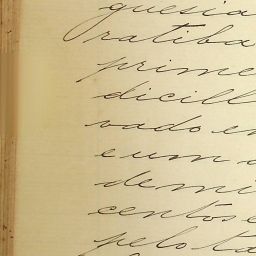 guesia
ratiba
prime
dicill
vado en
e um a
de mi
centos e
pelo ta